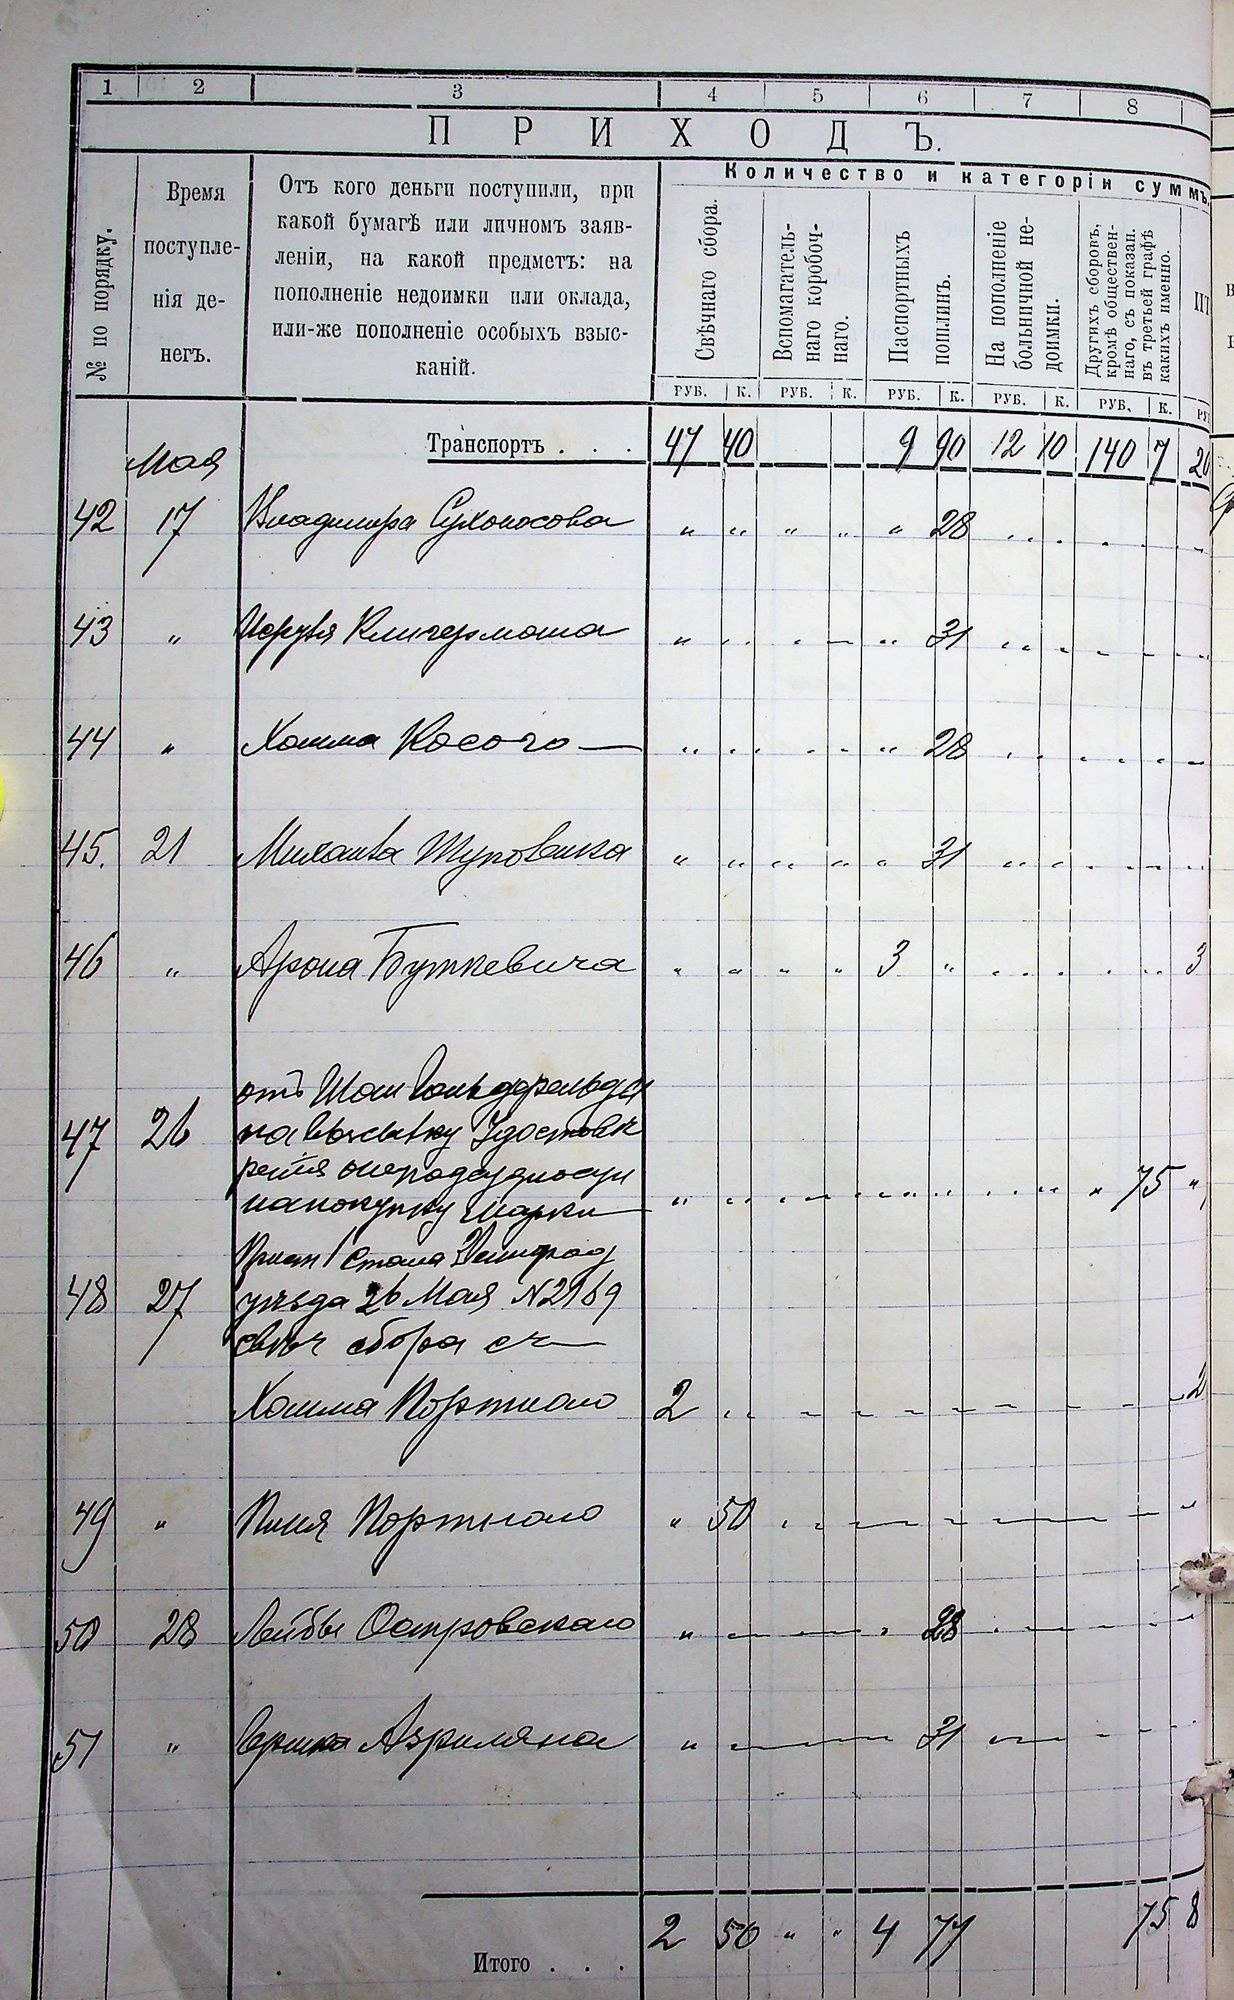 1 2 3 4 5 6 7 8
ПРИХОДЪ.
№ по порядку.
Время поступле-
нія де-
негъ.
Отъ кого деньги поступили, при
какой бумагѣ или личномъ заяв-
леніи, на какой предметъ: на
пополненіе недоимки или оклада,
или-же пополненіе особыхъ взыс-
каній.
Количество и категоріи суммъ
Свѣчнаго сбора.
Вспомагатель-
наго коробоч-
наго.
Паспортныхъ
пошлинъ.
На пополненіе
больничной не-
доимки.
Другихъ сборовъ,
кромѣ обществен-
наго, съ показан.
въ третьей графѣ
какихъ именно.
РУБ. К. РУБ. К. РУБ. К. РУБ. К. РУБ. К.
Транспортъ . . . 47 40 9 90 12 10 140 7
Мая
42 17 Владимира Сухоносова " " " " " 28
43 " Клигермана " 31
44 " Хаима Косого " 28
45. 21 Михаила Шуповика " 31
46 " Арона Буткевича " " " " 3 " 3
отъ Гольдфельда
47 26 на высылку Удостовѣ
ренія о неподсудности
на покупку марки " 75 "
Прист 1 стана
48 27 уѣзда 26 Мая N 2169
свѣч сбора съ
Хаима Портного 2 2
49 " Пиня Портного " 50
50 28 Лейбы Островскаго " 28
51 " Азриляна " 31
Итого . . . 2 50 " " 4 77 75 8